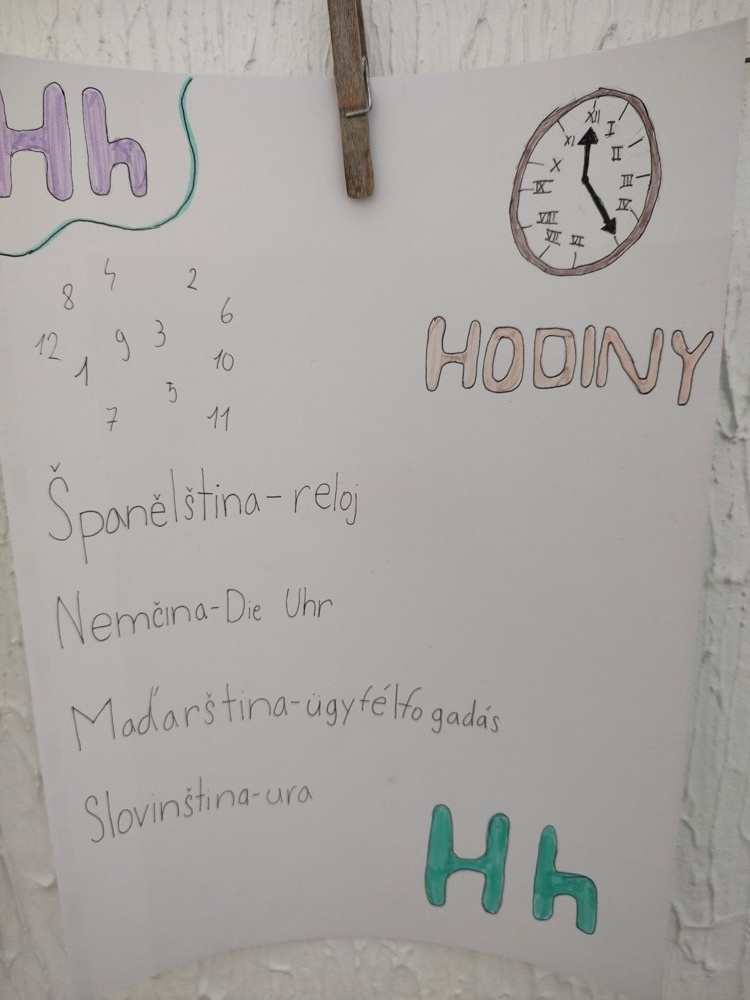 Hh
XII
I
II
III
IV
VI
VII
VIII
IX
X
XI
HODINY
4 2
8 6
12 9 3 10
1 5
7 11
Španělština-reloj
Nemčina-Die Uhr
Maďarština-ügyfélfogadás
Slovinština-ura
Hh